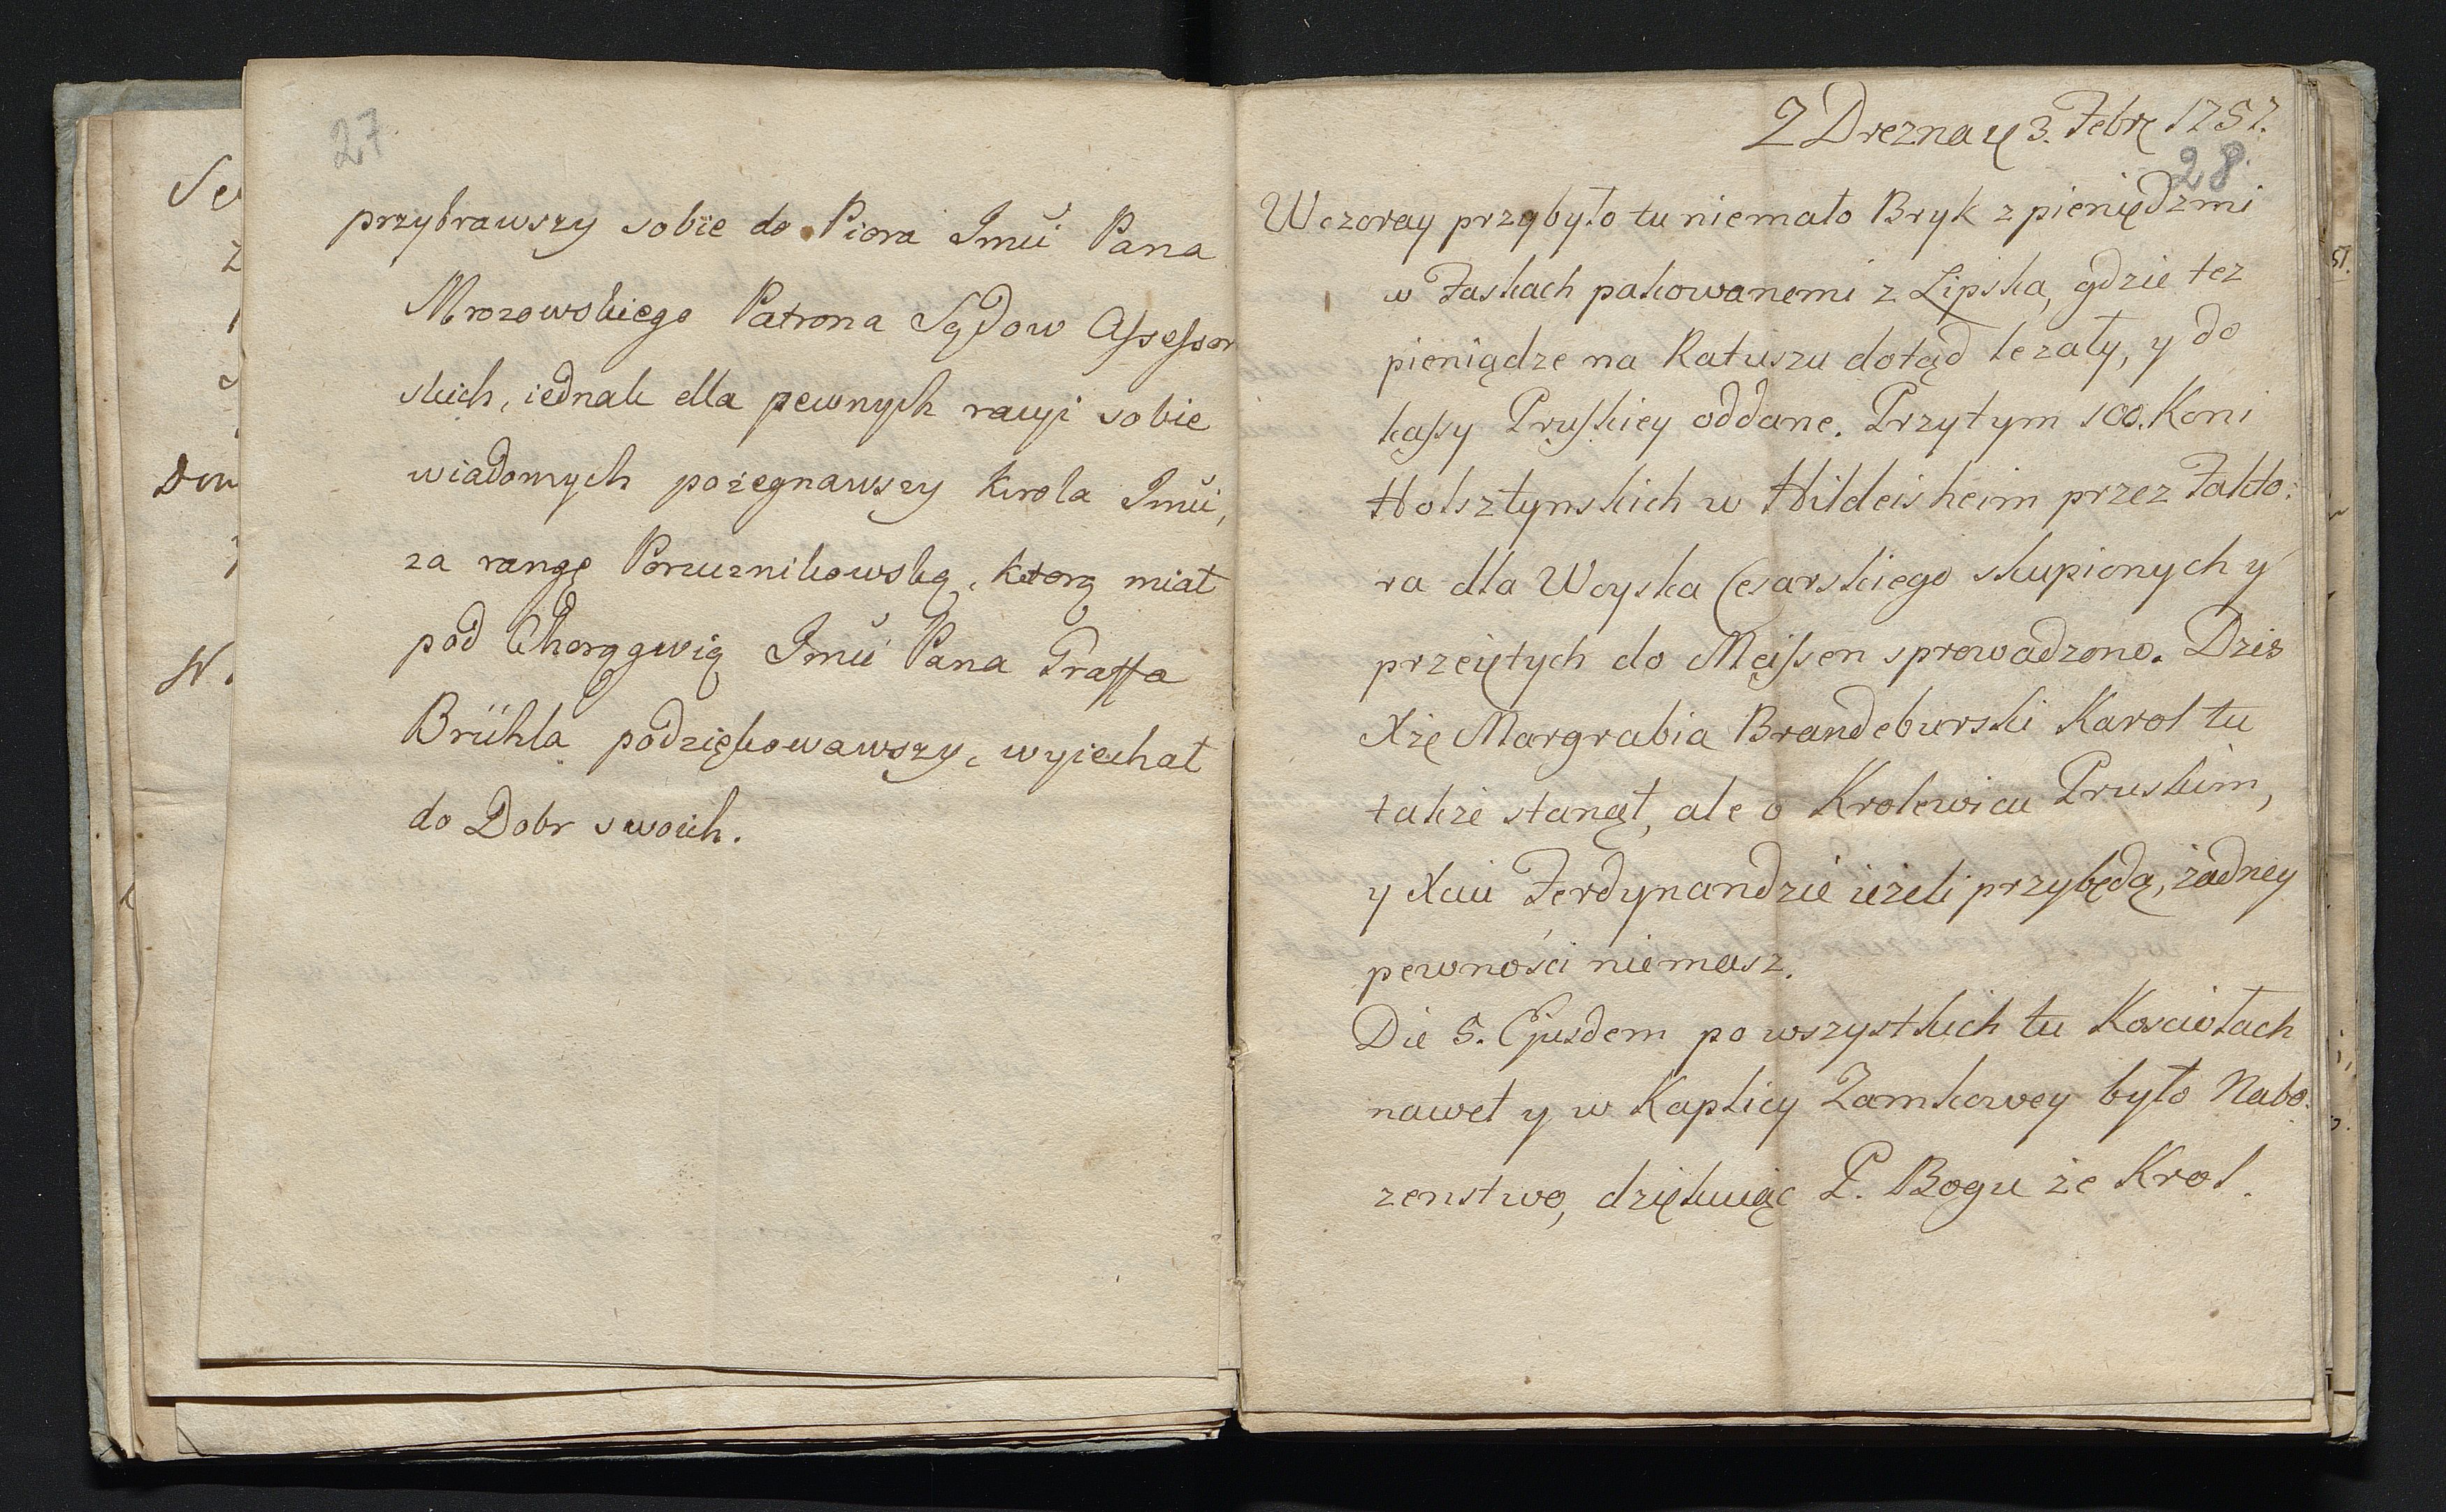 27
przybrawszy sobie do Piora Jmći Pana
Mrozowskiego Patrona Sądow Assessor
skich, iednak dla pewnych racyi sobie
wiadomych pożegnawszy Krola Jmći,
za rangę Porucznikowską, ktorą miał
pod Chorągwią Jmći Pana Graffa
Brühla podziękowawszy, wyiechał
do Dobr swoich.
Z Drezna 3. Febr 1757.
28.
Wczoray przybyło tu niemało Bryk z pieniędzmi
w Faskach pakowanemi z Lipska, gdzie tez
pieniądze na Ratuszu dotąd lezały, y do
kassy Pruskiey oddane. Przytym 100. Koni
Holsztynskich w Hildeisheim przez Fakto:
ra dla Woyska Cesarskiego skupionych y
przeiętych do Meissen sprowadzono. Dzis
Xżę Margrabia Brandeburski Karol tu
także stanął, ale o Krolewicu Pruskim,
y Xciu Ferdynandzie ieżeli przybędą, żadney
pewności niemasz.
Die 5. Ejusdem po wszystkich tu Kosciołach
nawet y w Kaplicy Zamkowey było Nabo:
zenstwo, dziękuiąc P. Bogu że Krol.